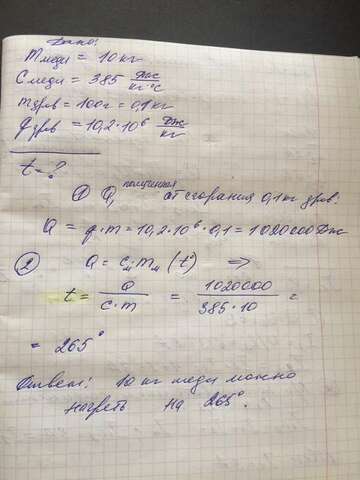 Дано:
m меди = 10 кг
C меди = 385 Дж/кг·°C
m дров = 100г = 0,1 кг
q дров = 10,2·10⁶ Дж/кг
t - ?
① Q, полученная от сгорания 0,1 кг дров:
Q = q·m = 10,2·10⁶·0,1 = 1020000 Дж
② Q = cₘ·mₘ (t°) ⇒
t = Q/c·m = 1020000/385·10 =
= 265°
Ответ: 10 кг меди можно
нагреть на 265°.